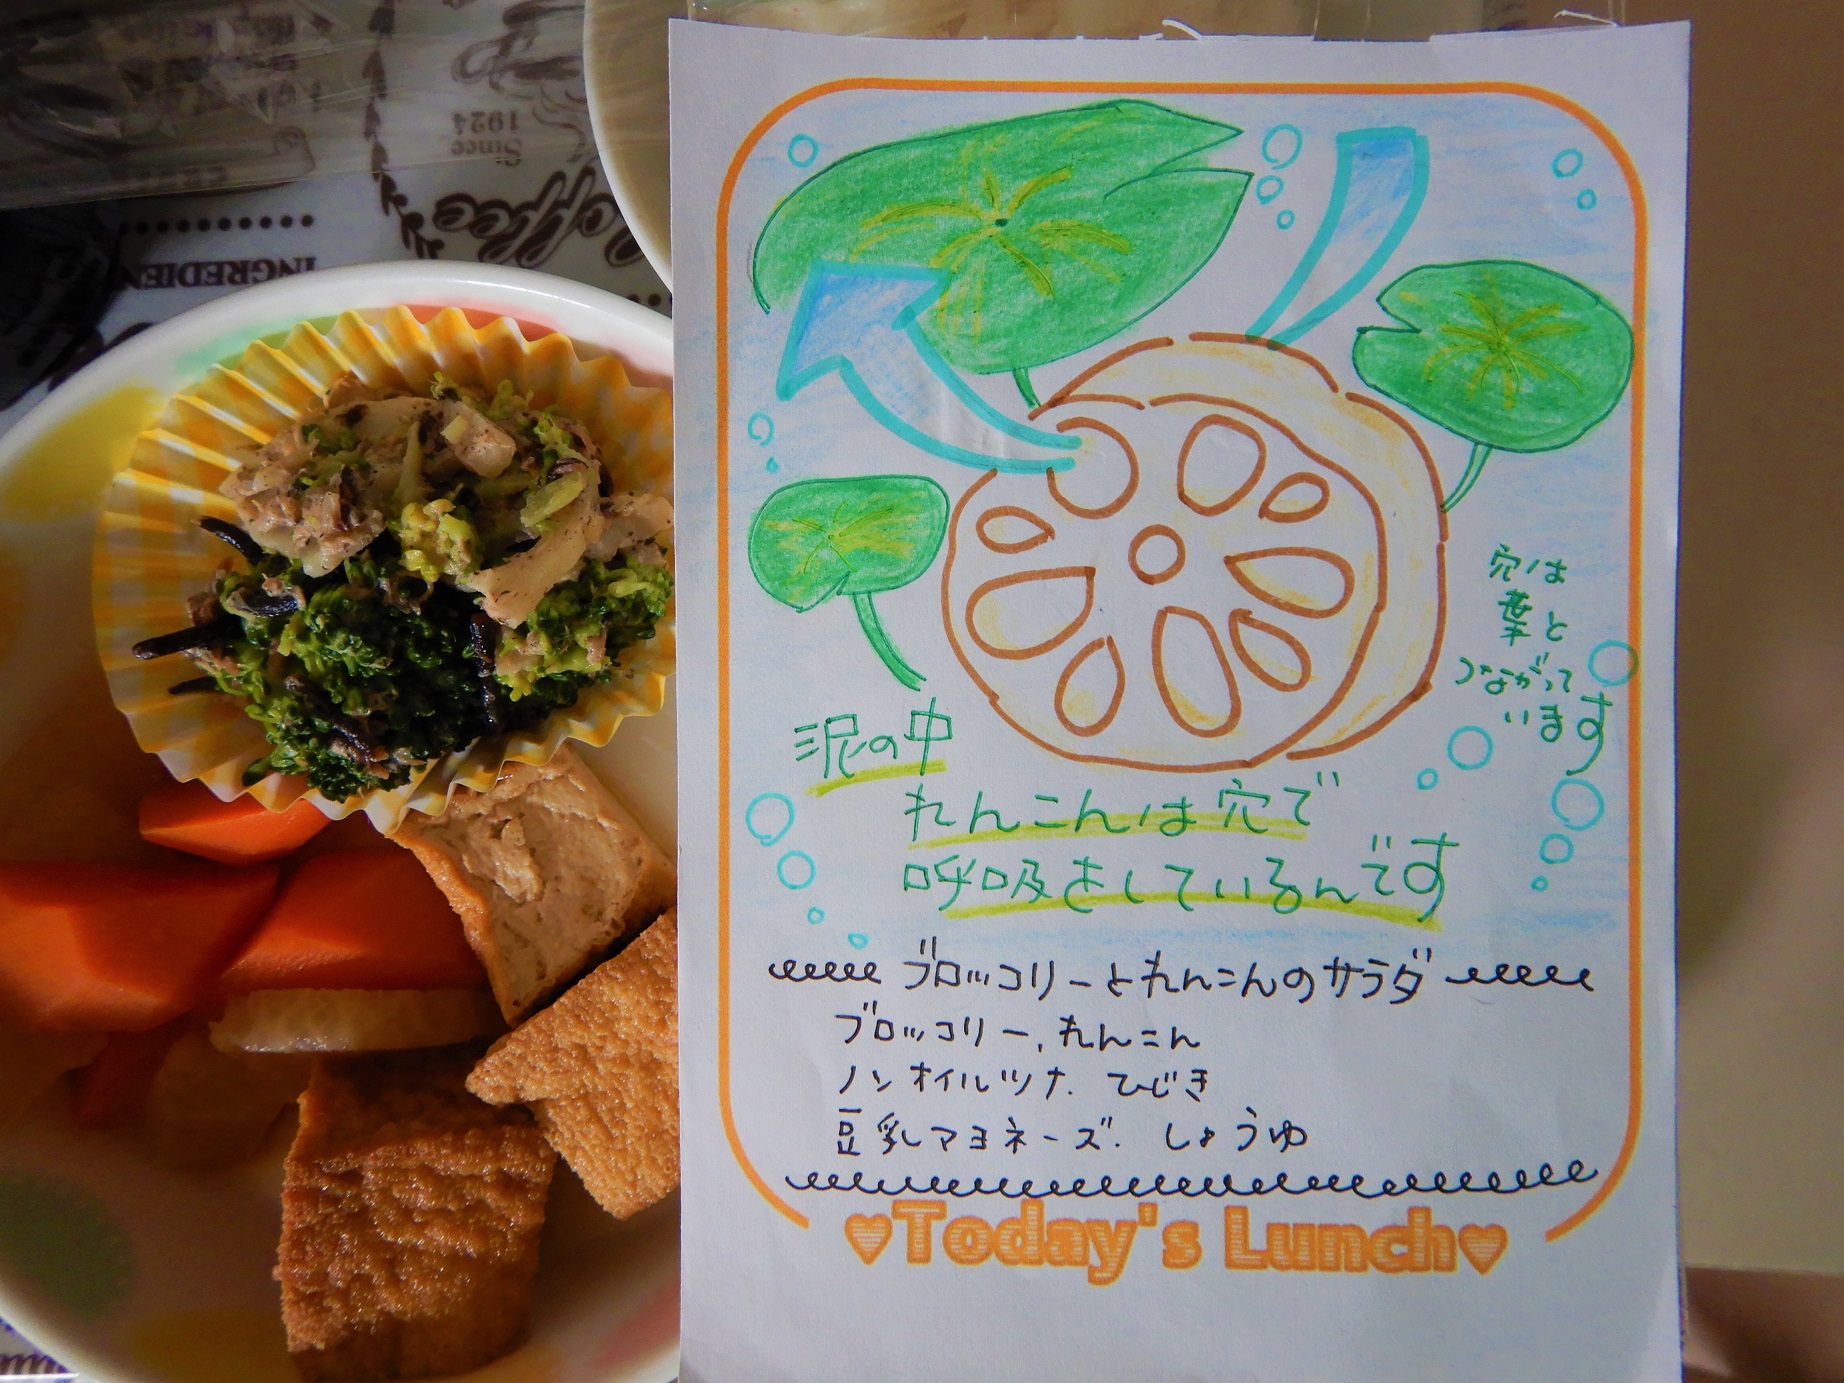 Since
1924
Coffee
INGREDIEN
穴は
葉と
つながって
います
泥の中
れんこんは穴で
呼吸をしているんです
ブロッコリーとれんこんのサラダ
ブロッコリー、れんこん
ノンオイルツナ、ひじき
豆乳マヨネーズ、しょうゆ
♥Today's Lunch♥